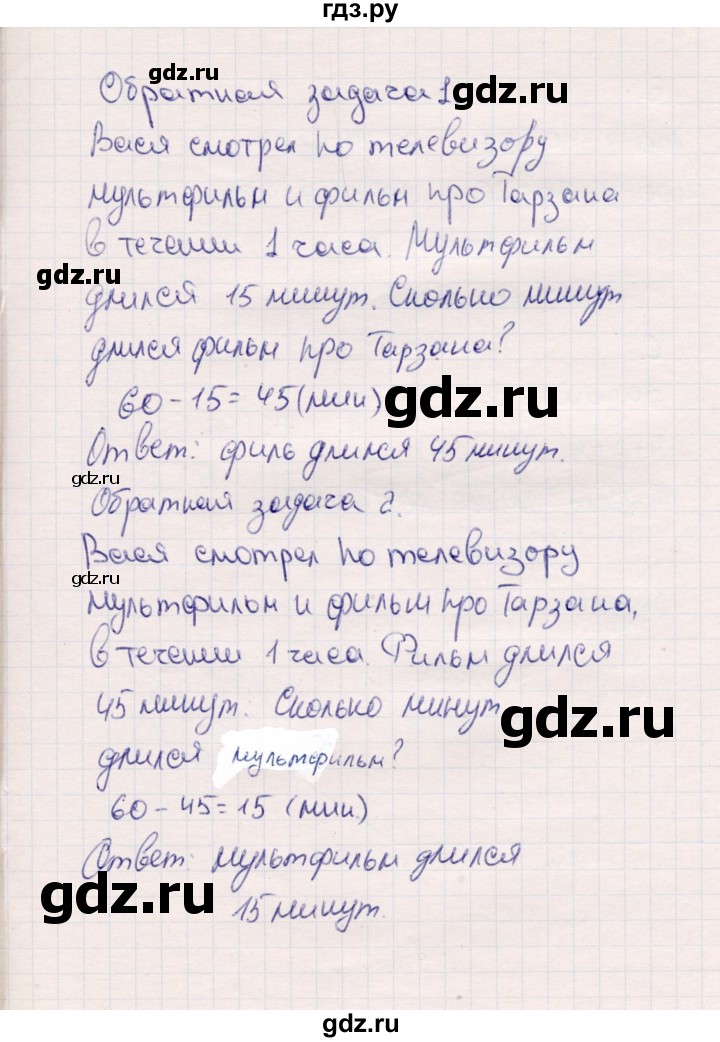 гдз.ру
gdz.ru
Обратная задача 1 gdz.ru
Вася смотрел по телевизору
мультфильм и фильм про Тарзана
в течении 1 часа. Мультфильм
gdz.ru
длился 15 минут. Сколько минут
длился фильм про Тарзана?
60-15=45(мин) gdz.ru
Ответ: филь длился 45 минут.
gdz.ru
Обратная задача 2.
Вася смотрел по телевизору
gdz.ru
мультфильм и фильм про Тарзана,
в течении 1 часа. Фильм длился
45 минут. Сколько минут
gdz.ru
длился мультфильм?
60-45=15 (мин)
Ответ: мультфильм длился
gdz.ru
15 минут.
gdz.ru